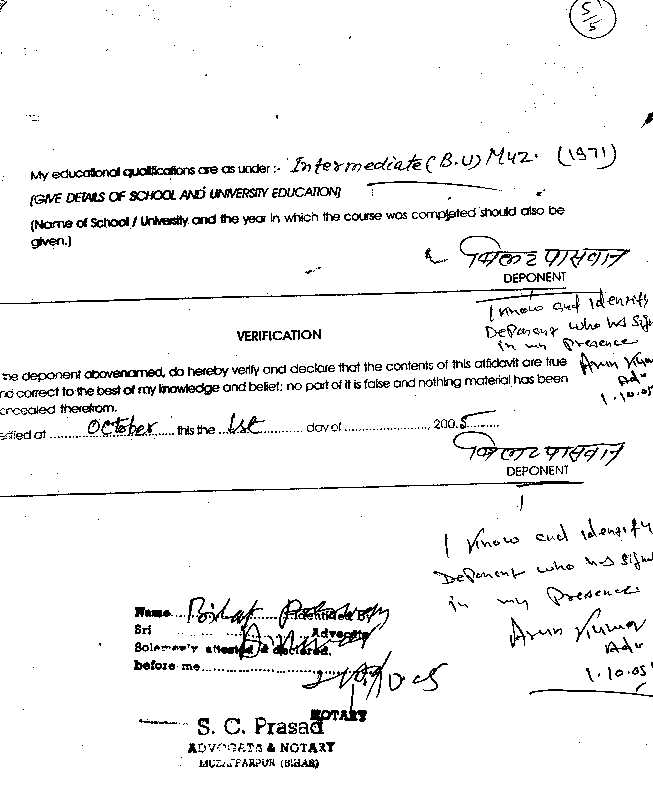 5/5
My educational qualifications are as under :- Intermediate (B.U) Muz. (1971)
[GIVE DETAILS OF SCHOOL AND UNIVERSITY EDUCATION]
(Name of School / University and the year in which the course was completed should also be
given.)
पासवान
DEPONENT
I know and identify
Deponent who has sig
in my presence
VERIFICATION
he deponent abovenamed, do hereby verify and declare that the contents of this affidavit are true
nd correct to the best of my knowledge and belief; no part of it is false and nothing material has been
oncealed therefrom.
Arun Kum
Adv
1.10.05
erified at October this the 1st day of 2005
पासवान
DEPONENT
I know and identify
Deponent who has sign
in my Presence
Arun Kumar
Adv
1.10.05
Name Identified By
Sri Advocate
Solemnly attested & declared.
before me
NOTARY
S. C. Prasad
ADVOCATE & NOTARY
MUZAFFARPUR (BIHAR)